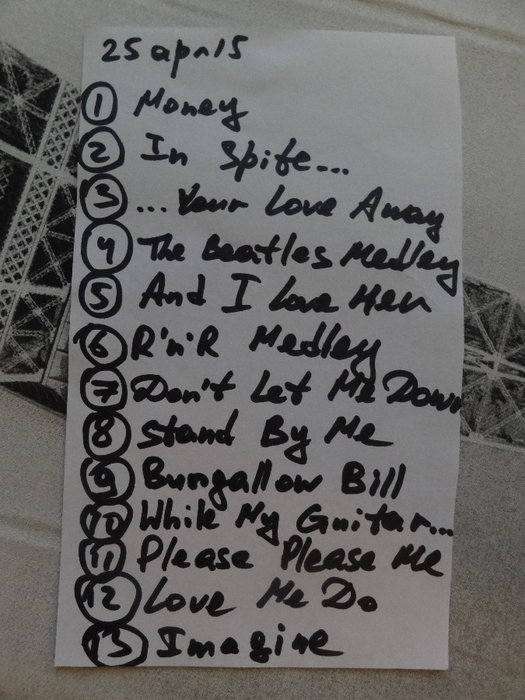 25 apr 15
1 Money
2 In Spite...
3 ... Your Love Away
4 The Beatles Medley
5 And I Love Her
6 R'n'R Medley
7 Don't Let Me Down
8 Stand By Me
9 Bungallow Bill
10 While My Guitar...
11 Please Please Me
12 Love Me Do
13 Imagine